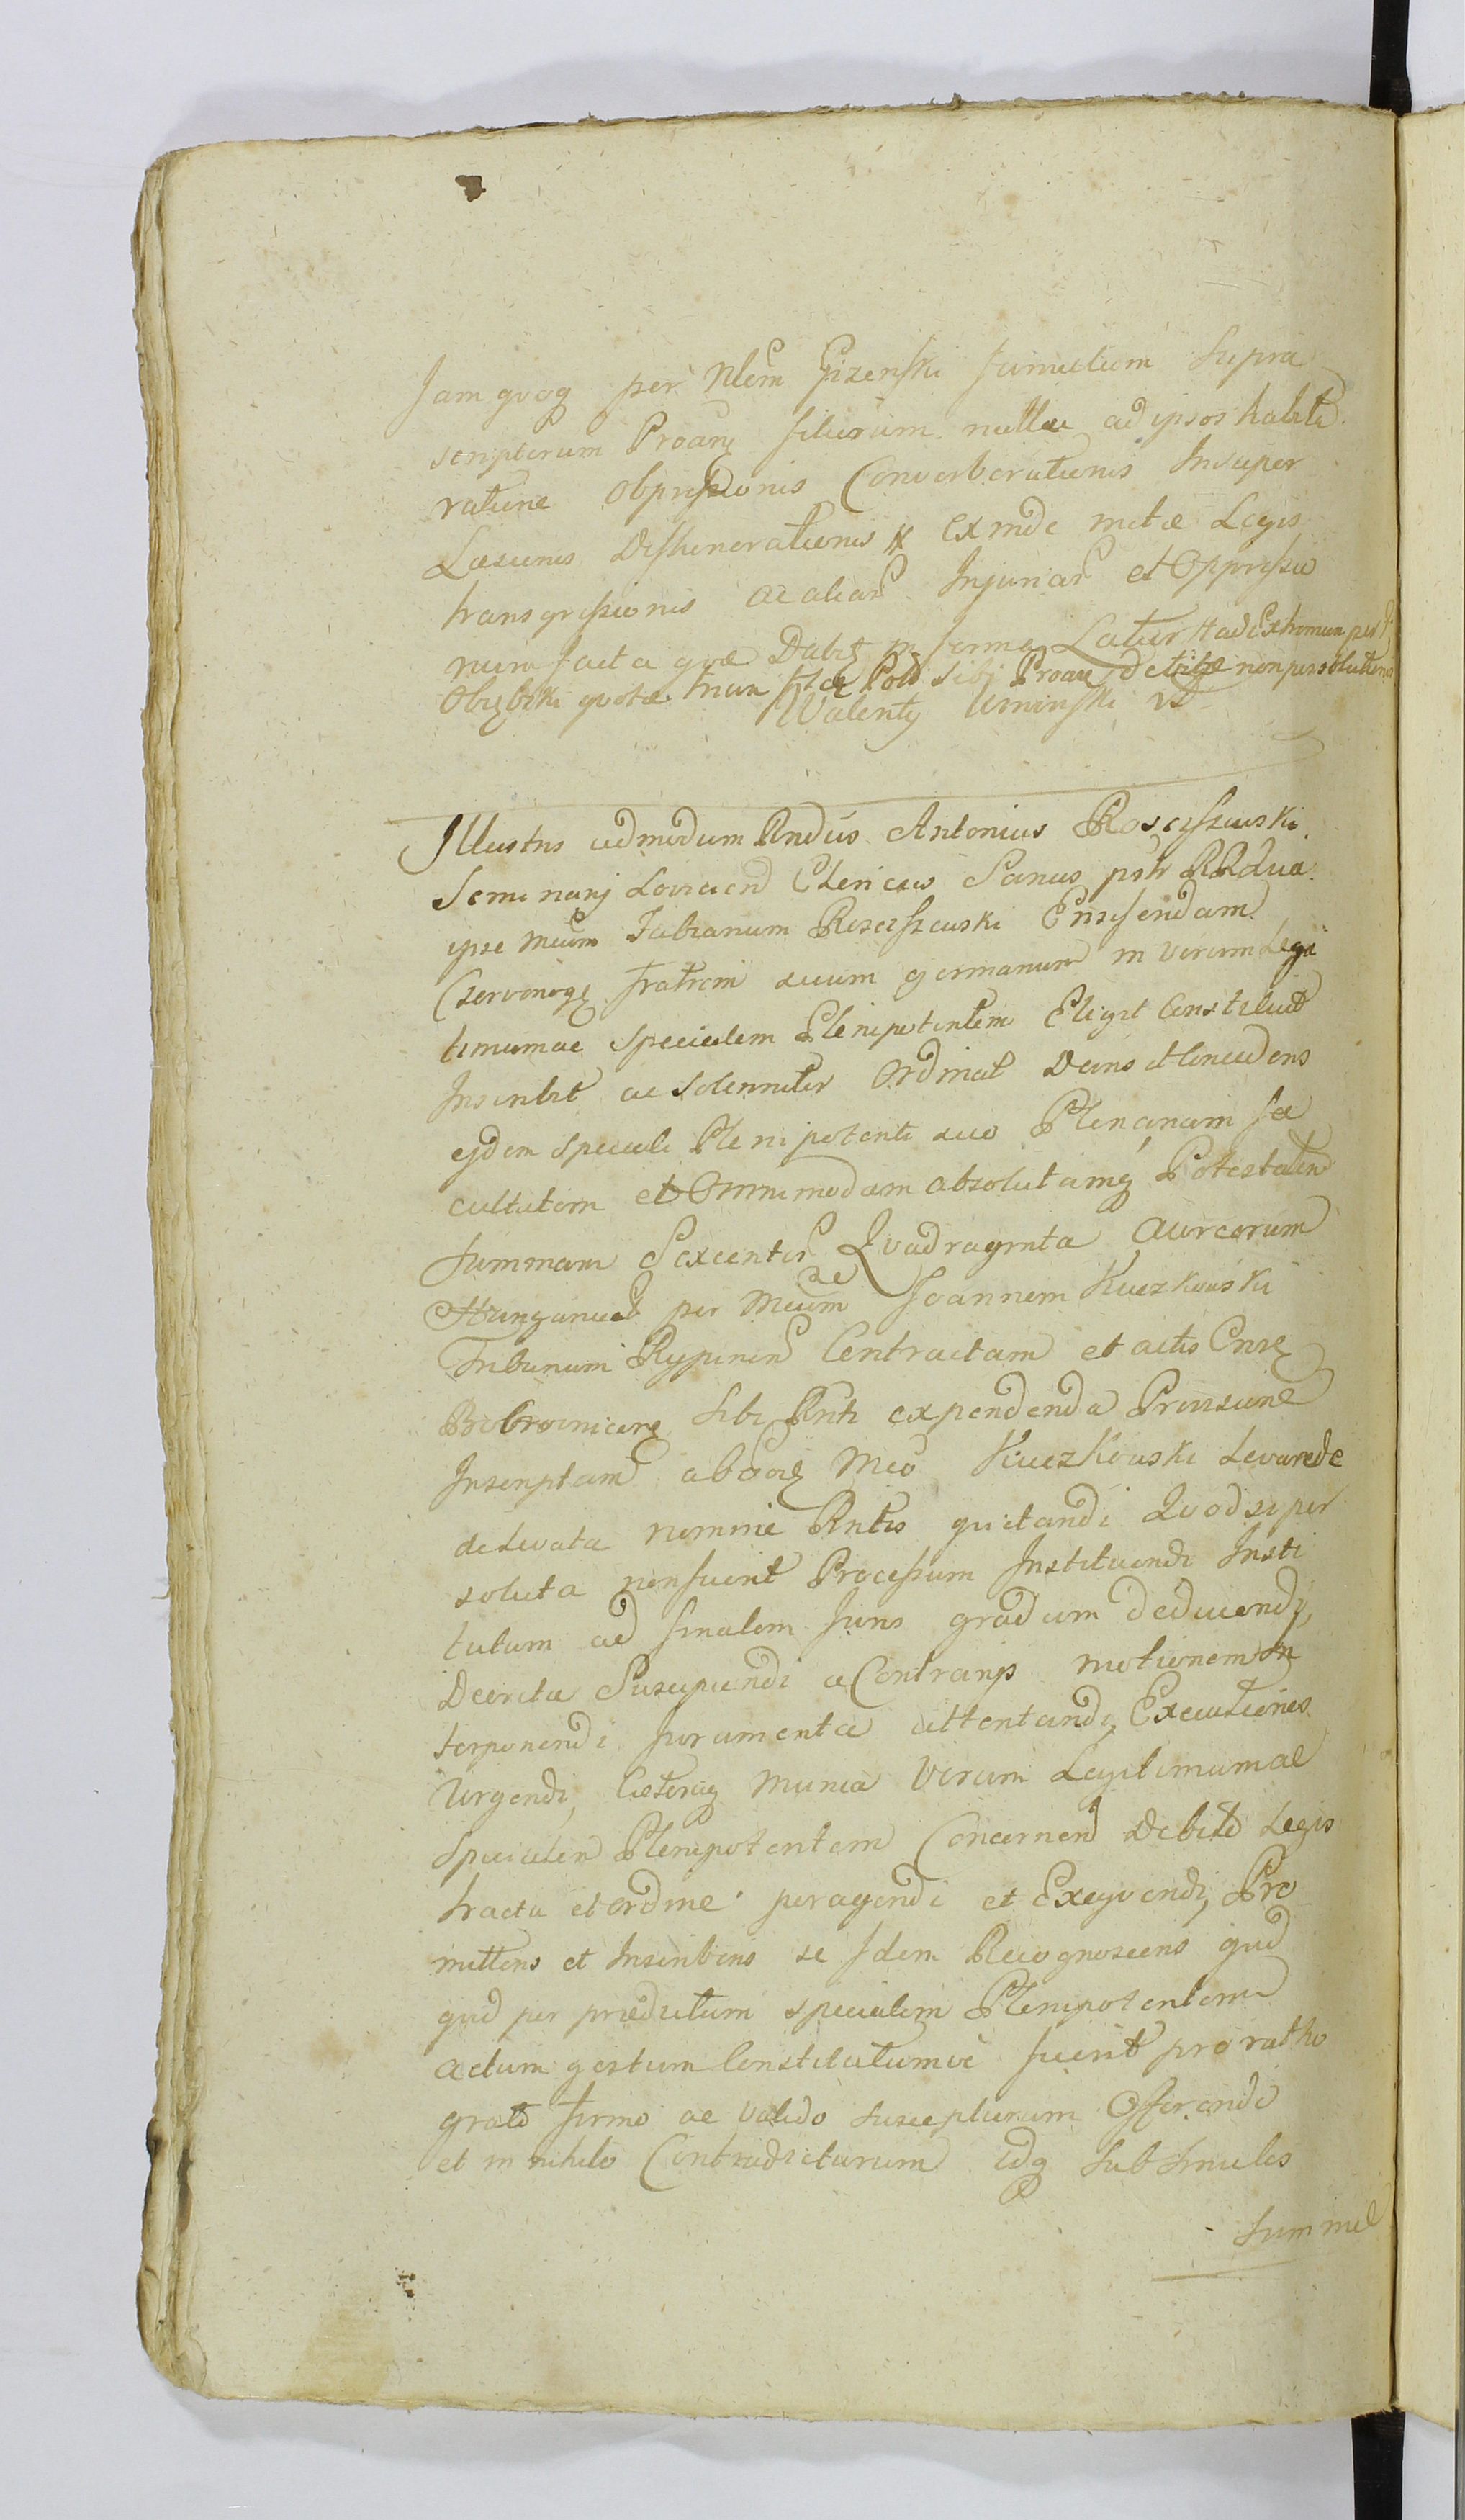 Jam qvoq per Nlem Gizenski famulum supra
scriptorum Proarz filiorum nullae ad ipsos habita
ratione obpressionis Converberationis Insuper
Laesionis Dishonorationis & Exinde metae Legis
transgressionis ac aliar Injuriar et Oppressio
num facta qvae Dabitz in forma Latius # ad Extremum per
Obrębski qvotae trium flor Pold sibi Proari debitae non persolutionis
Walenty Uminski VD
Illustris admodum Rndus Antonius Rosciszewski
Seminarij Lovicien Clericus Sanus pntr RRdua
ipse Mcum Fabianum Rosciszewski Ensisendam
Czervonogz Fratrem suum germanum in verum Legi
timumac specialem Plenipotentem Eligit Constituit
Inscribit ac solenniter Ordinat Dans et Concedens
ejdem speciali Plenipotenti suo Plenariam fa
cultatem et Omnimodam absolutamq Potestatem
Summam Sexcentor Qvadraginta Aureorum
Hungarical per Mcum ac Joannem Kuczkowski
Tribunum Rypinen Contractam et actis Cnsz
Bobrovnicenz sibi Rnti expendenda Provisione
Inscriptam ab eodz Mco Kuczkowski Levare de
delevata nomine Rntis quietandi Qvod si per
soluta non fuerit Processum Instituendi Insti
tutum ad finalem Juris gradum deducendi,
Decreta Suscipiendi a Contrariis motionem In
terponendi Juramenta attentandi, Executiones
Urgendi, Caeteraq Munia Verum Legitimum ac
Specialem Plenipotentem Concernen Debito Legis
tractu et ordine peragendi et Exeqvendi, Pro
mittens et Inscribens se Idem Recognoscens qvid
qvid per praedictum specialem Plenipotentem
actum gestum Constitutumve fuerit pro ratho
grato firmo ac valido suscepturum Offerendo
et in nihilo Contradicturum idq sub similis
Summae